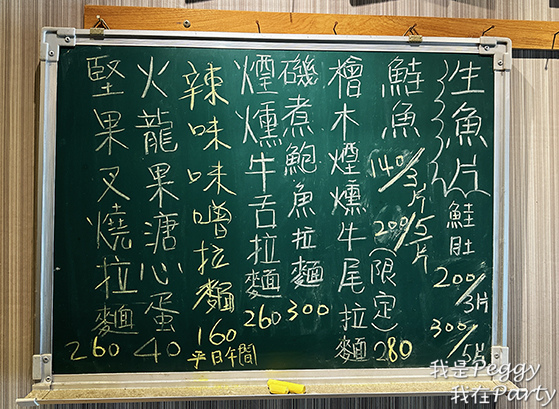 生魚片 鮭肚 200/3片 300/5片
鮭魚 140/3片 200/5片(限定)
檜木煙燻牛尾拉麵 280
磯煮鮑魚拉麵 300
煙燻牛舌拉麵 260
辣味味噌拉麵 160
平日午間
火龍果溏心蛋 40
堅果叉燒拉麵 260
我是Peggy
我在Party